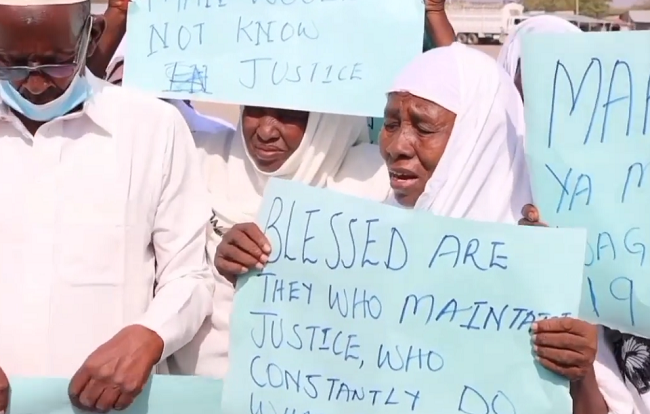 NOT KNOW
JUSTICE
BLESSED ARE
THEY WHO MAINTAI
JUSTICE, WHO
CONSTANTLY DO
YA M
19